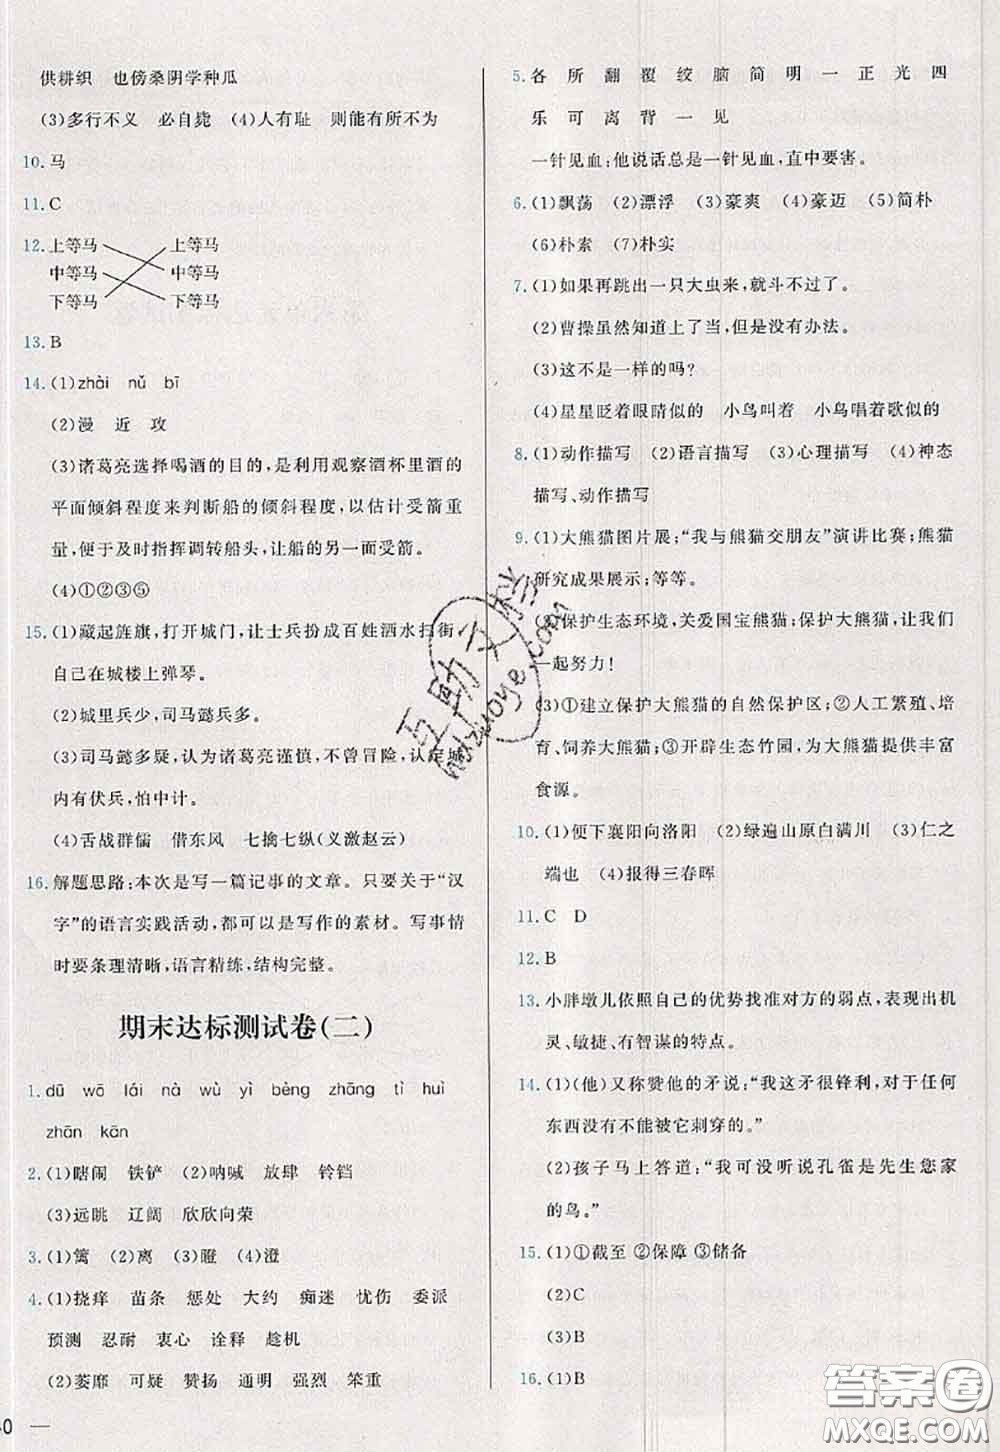 供耕织 也傍桑阴学种瓜
(3)多行不义 必自毙 (4)人有耻 则能有所不为
10. 马
11. C
12. 上等马 上等马
中等马 中等马
下等马 下等马
13. B
14. (1)zhài nǔ bī
(2)漫 近 攻
(3)诸葛亮选择喝酒的目的,是利用观察酒杯里酒的
平面倾斜程度来判断船的倾斜程度,以估计受箭重
量,便于及时指挥调转船头,让船的另一面受箭。
(4)①②③⑤
15. (1)藏起旌旗,打开城门,让士兵扮成百姓洒水扫街,
自己在城楼上弹琴。
(2)城里兵少,司马懿兵多。
(3)司马懿多疑,认为诸葛亮谨慎,不敢冒险,认定城
内有伏兵,怕中计。
(4)舌战群儒 借东风 七擒七纵(义激赵云)
16. 解题思路:本次是写一篇记事的文章。只要关于“汉
字”的语言实践活动,都可以是写作的素材。写事情
时要条理清晰,语言精练,结构完整。
期末达标测试卷(二)
1. dū wō lái nà wù yì bèng zhāng tì huì
zhān kān
2. (1)瞎闹 铁铲 (2)呐喊 放肆 铃铛
(3)远眺 辽阔 欣欣向荣
3. (1)篱 (2)离 (3)瞪 (4)澄
4. (1)挠痒 苗条 惩处 大约 痴迷 忧伤 委派
预测 忍耐 衷心 诠释 趁机
(2)萎靡 可疑 赞扬 通明 强烈 笨重
5. 各 所 翻 覆 绞 脑 简 明 一 正 光 四
乐 可 离 背 一 见
一针见血;他说话总是一针见血,直中要害。
6. (1)飘荡 (2)漂浮 (3)豪爽 (4)豪迈 (5)简朴
(6)朴素 (7)朴实
7. (1)如果再跳出一只大虫来,
(2)曹操虽然知道上了当,但是没有办法。
(3)这不是一样的吗?
(4)星星眨着眼睛似的 小鸟叫着 小鸟唱着歌似的
8. (1)动作描写 (2)语言描写 (3)心理描写 (4)神态
描写、动作描写
9. (1)大熊猫图片展;“我与熊猫交朋友”演讲比赛;熊猫
研究成果展示;等等。
(2)保护生态环境,关爱国宝熊猫;保护大熊猫,让我们
一起努力!
(3)①建立保护大熊猫的自然保护区;②人工繁殖、培
育、饲养大熊猫;③开辟生态竹园,为大熊猫提供丰富
食源。
10. (1)便下襄阳向洛阳 (2)绿遍山原白满川 (3)仁之
端也 (4)报得三春晖
11. C D
12. B
13. 小胖墩儿依照自己的优势找准对方的弱点,表现出机
灵、敏捷、有智谋的特点。
14. (1)(他)又称赞他的矛说:“我这矛很锋利,对于任何
东西没有不能被它刺穿的。”
(2)孩子马上答道:“我可没听说孔雀是先生您家
的鸟。”
15. (1)①截至 ②保障 ③储备
(2)C
(3)B
16. (1)B
互助文库
huzuoye.com
答案圈
MXQE.COM